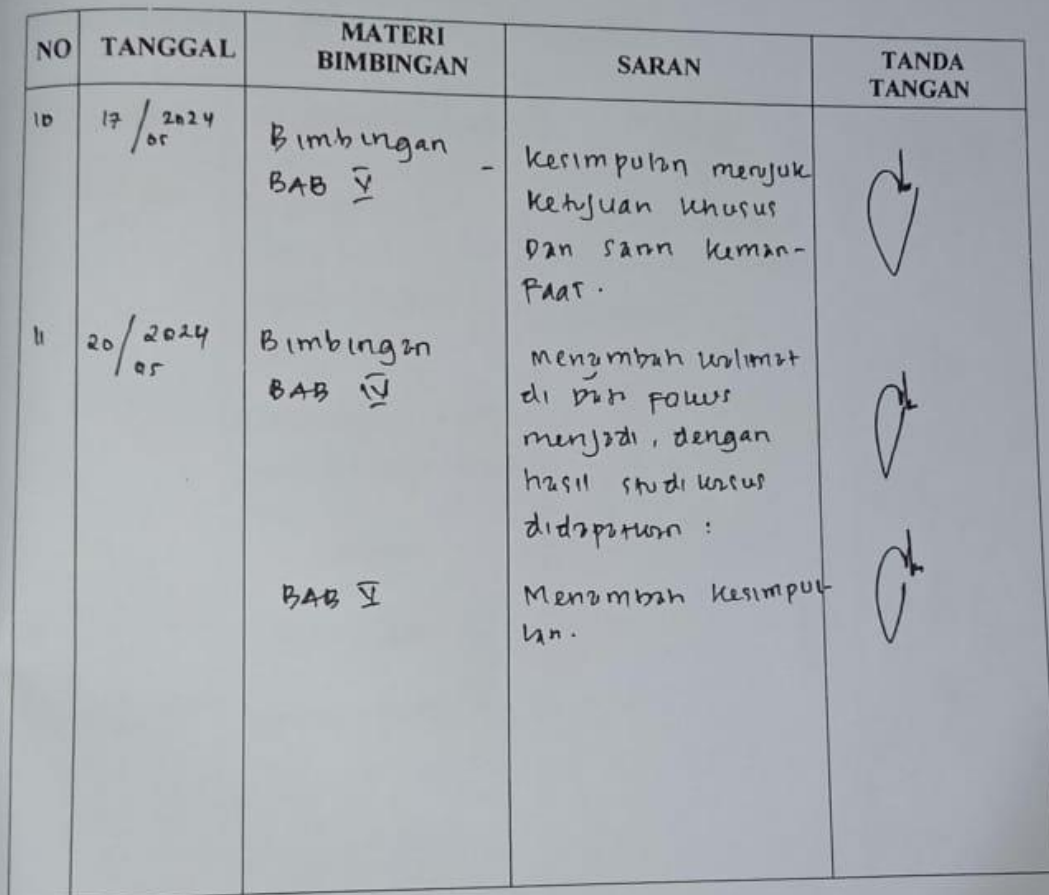 NO TANGGAL MATERI BIMBINGAN SARAN TANDA TANGAN
10 17/05 2024 Bimbingan - Kesimpulan merujuk
BAB V ketujuan khusus
Dan saran keman-
Faat.
11 20/05 2024 Bimbingan Menambah kalimat
BAB IV di fokus
menjadi, dengan
hasil studi kasus
didapatkan :
BAB V Menambah kesimpul-
lan.